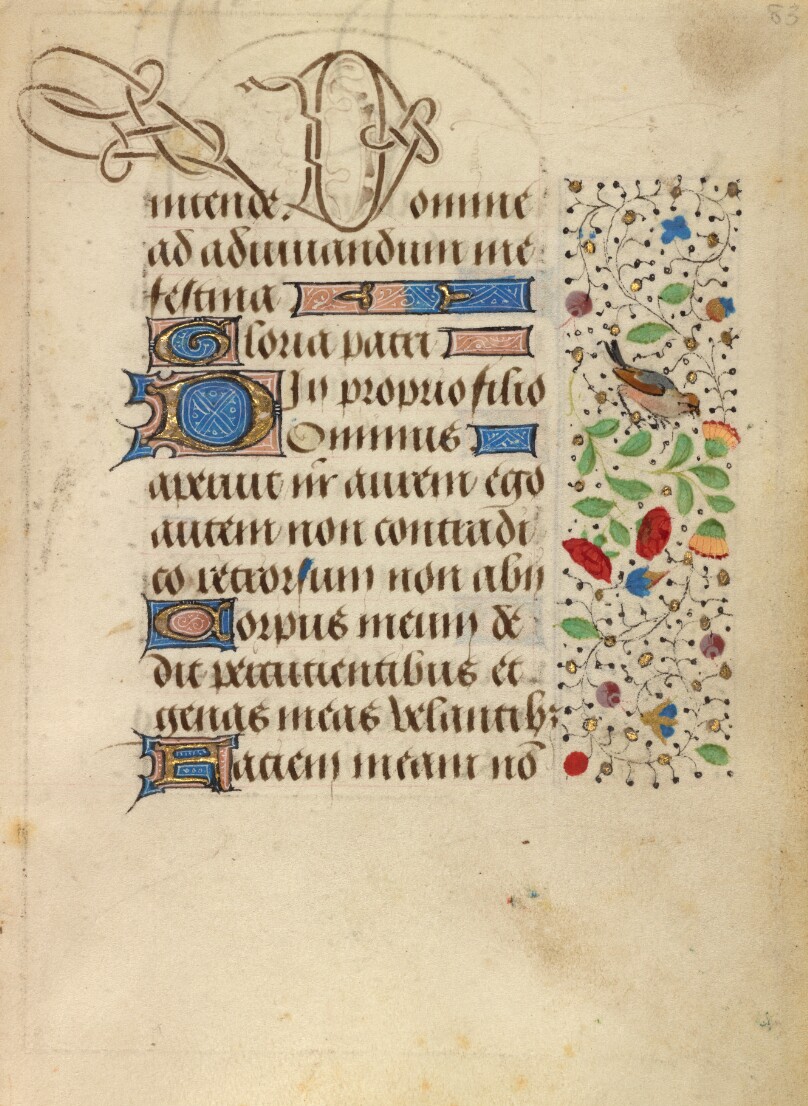 83
intende. Domine
ad adiuuandum me
festina
Gloria patri
In proprio filio
Dominus
aperuit m̄ aurem ego
autem non contradi
co retrorsum non abii
Corpus meum de
di percutientibus et
genas meas velantib;
Faciem meam nō